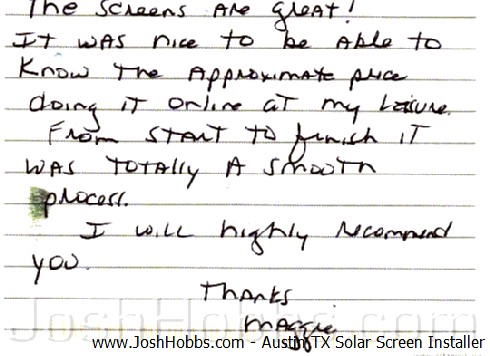 The screens are great!
It was nice to be able to
know the approximate price
doing it online at my leisure.
From start to finish it
was totally a smooth
process.
I will highly recommend
you.
Thanks
Maggie
JoshHobbs.com
www.JoshHobbs.com - Austin TX Solar Screen Installer